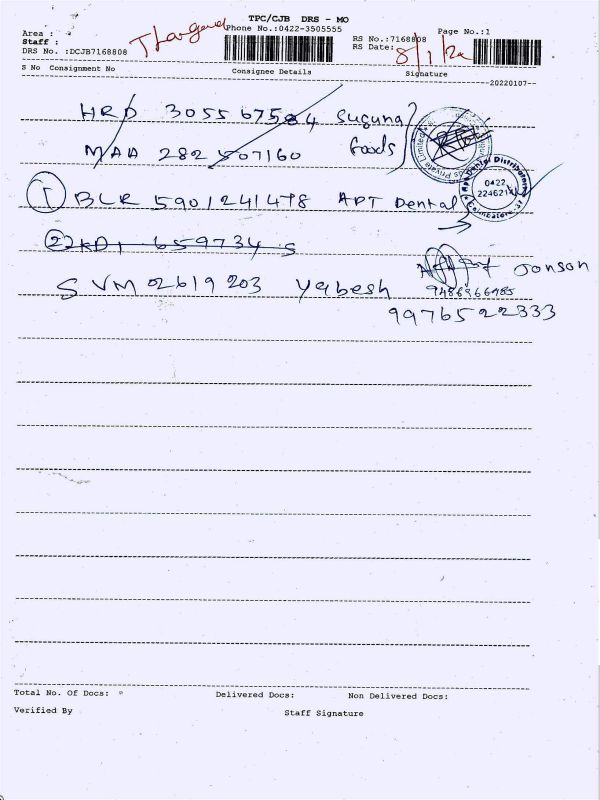 TPC/CJB DRS - MO
Phone No.:0422-3505555
Area :
Staff :
DRS No. :DCJB7168808
RS No.:7168808
RS Date:
8/1/22
Page No.:1
S No Consignment No
Consignee Details
Signature
20220107--
HRD 305567584 Suguna
MAA 282507160 foods
1 BLR 5901241478 APT Dental
0422
Coimbatore
2 659734 S
SVM 02619203 Yabesh
Jonson
9486966985
9976522333
Total No. Of Docs:
Delivered Docs:
Non Delivered Docs:
Verified By
Staff Signature